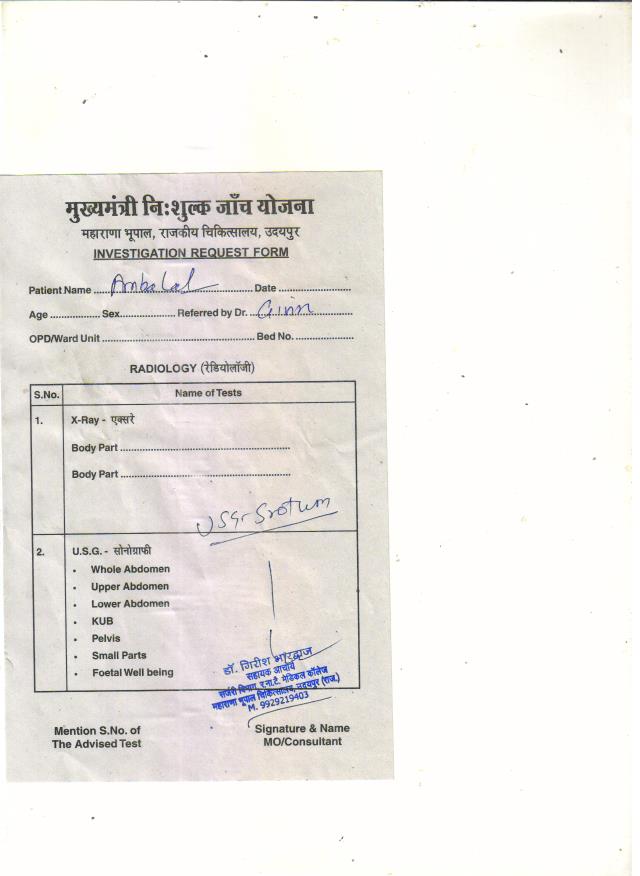 मुख्यमंत्री निःशुल्क जाँच योजना
महाराणा भूपाल, राजकीय चिकित्सालय, उदयपुर
INVESTIGATION REQUEST FORM
Patient Name .......... Ambalal .......... Date ..........
Age .......... Sex .......... Referred by Dr. ..........
OPD/Ward Unit .......... Bed No. ..........
RADIOLOGY (रेडियोलॉजी)
S.No. Name of Tests
1. X-Ray - एक्सरे
Body Part ..........
Body Part ..........
USG Srotum
2. U.S.G. - सोनोग्राफी
• Whole Abdomen
• Upper Abdomen
• Lower Abdomen
• KUB
• Pelvis
• Small Parts
• Foetal Well being
डॉ. गिरीश भारद्वाज
सहायक आचार्य
सर्जरी विभाग, र.ना.टै. मेडिकल कॉलेज
महाराणा भूपाल चिकित्सालय, उदयपुर (राज.)
M. 9929219403
Mention S.No. of
The Advised Test
Signature & Name
MO/Consultant